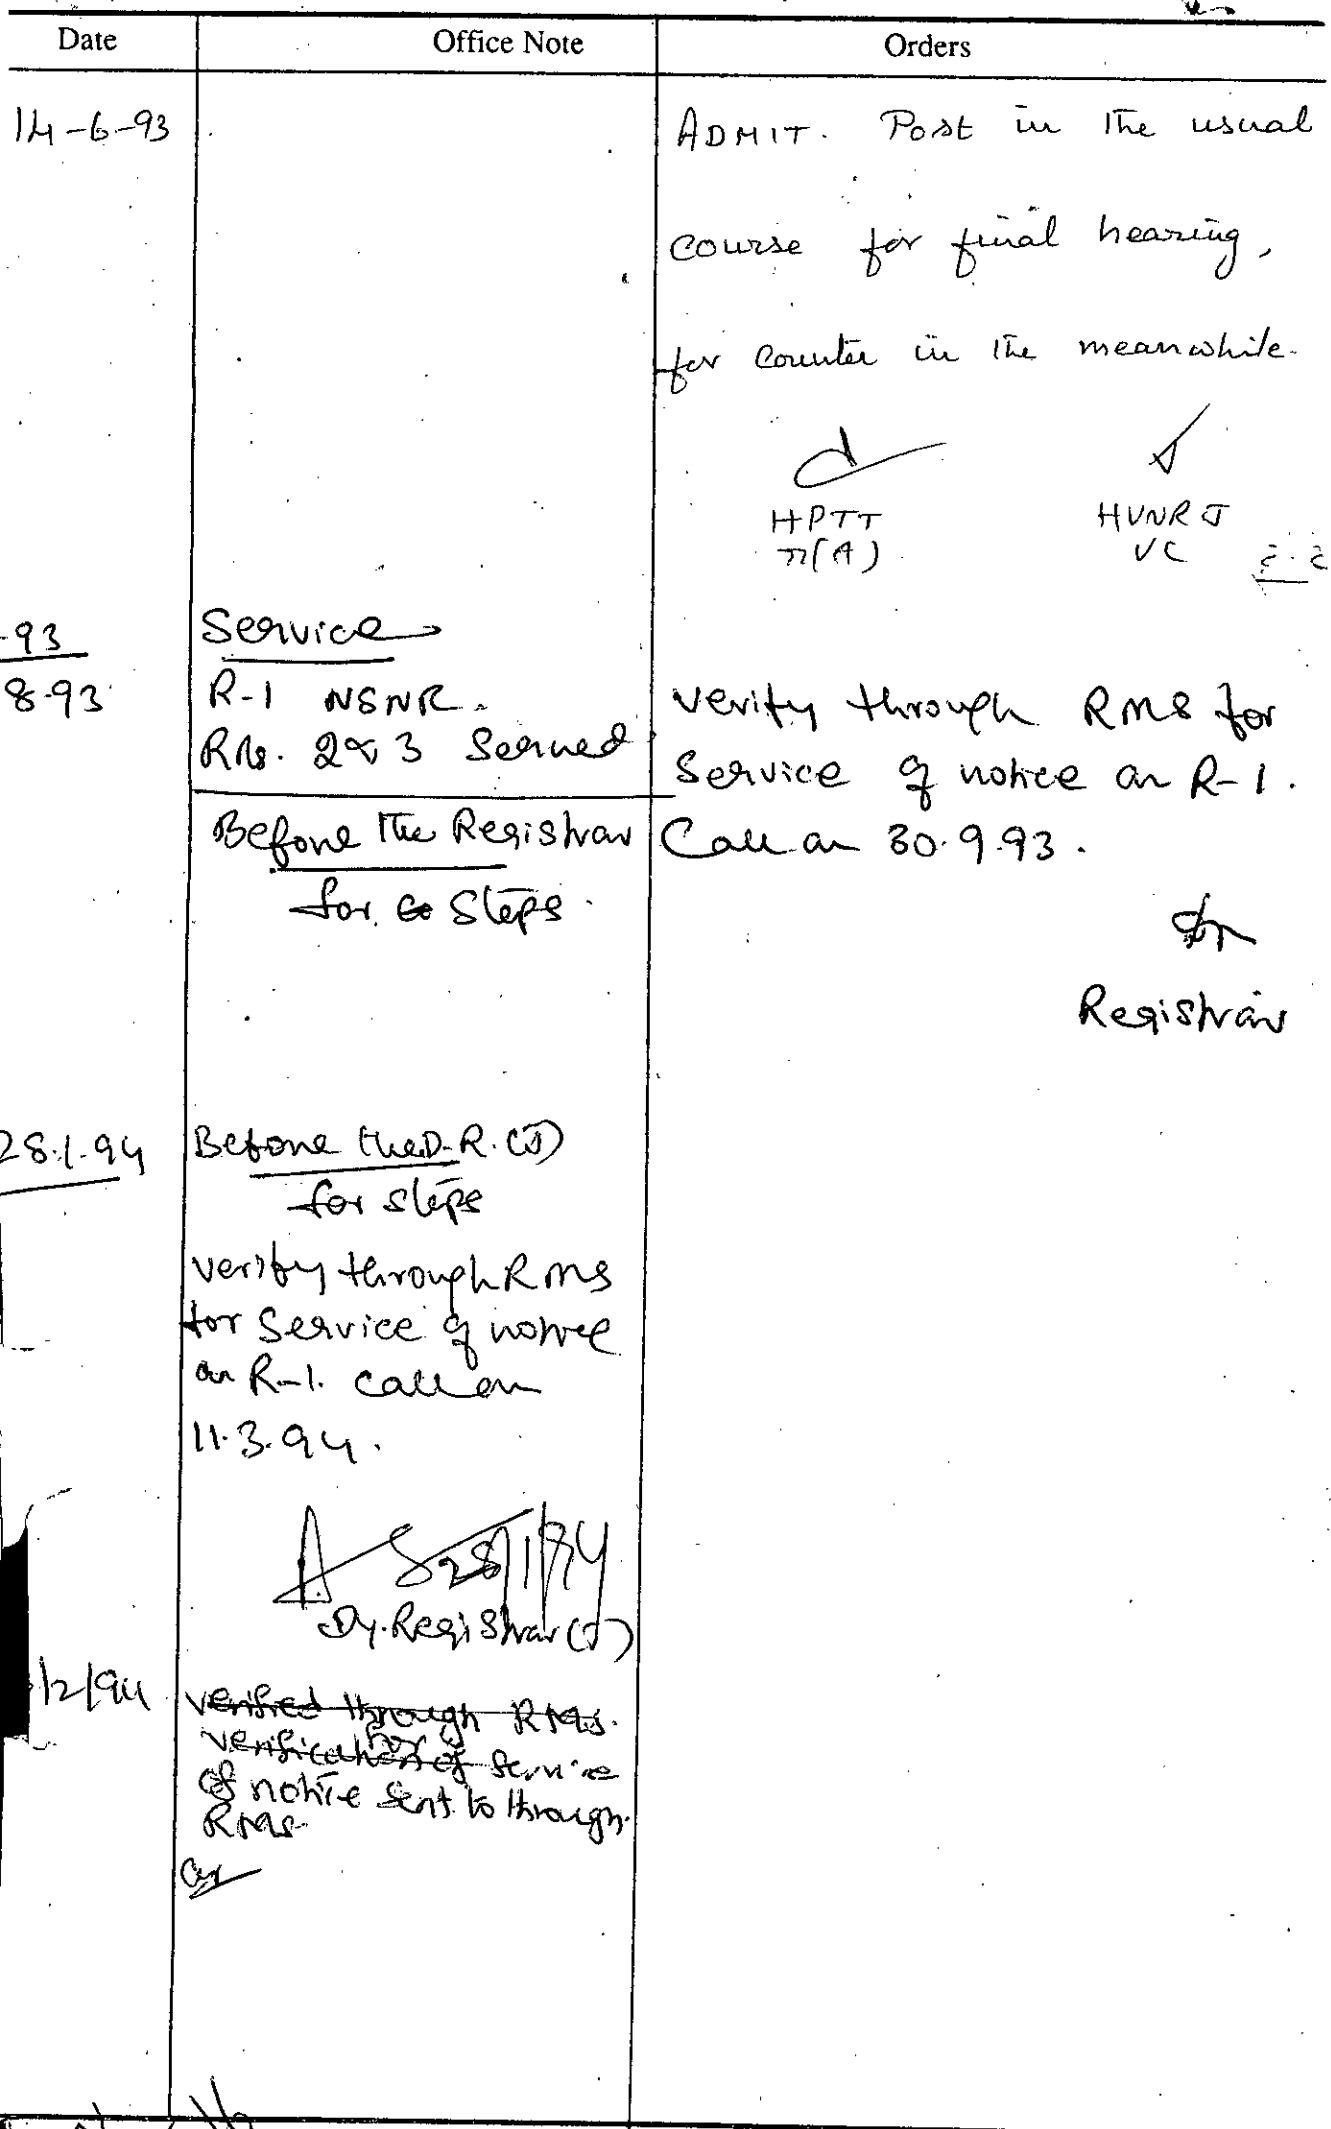 Date Office Note Orders
14-6-93 ADMIT. Post in the usual
course for final hearing,
for counter in the meanwhile.
HPTT HVNRJ
M(A) VC
-93 Service
8-93 R-1 NSNR.
Rs. 2 & 3 Served
Before the Registrar
for Steps
Verify through RMS for
Service of notice on R-1.
Call on 30.9.93.
Registrar
28.1.94 Before the D.R.(J)
for steps
Verify through RMS
for Service of notice
on R-1. Call on
11.3.94.
28/1/94
Dy. Registrar (J)
/2/94 verified through RMS.
for
verification of Service
of notice sent to through
RMS